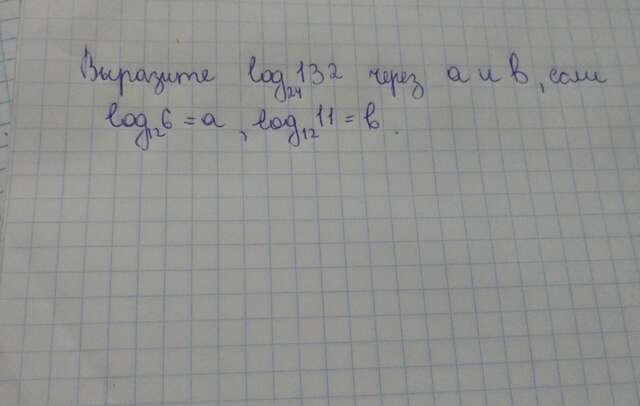 Выразите log₂₄132 через a и b, если
log₁₂6 = a, log₁₂11 = b.